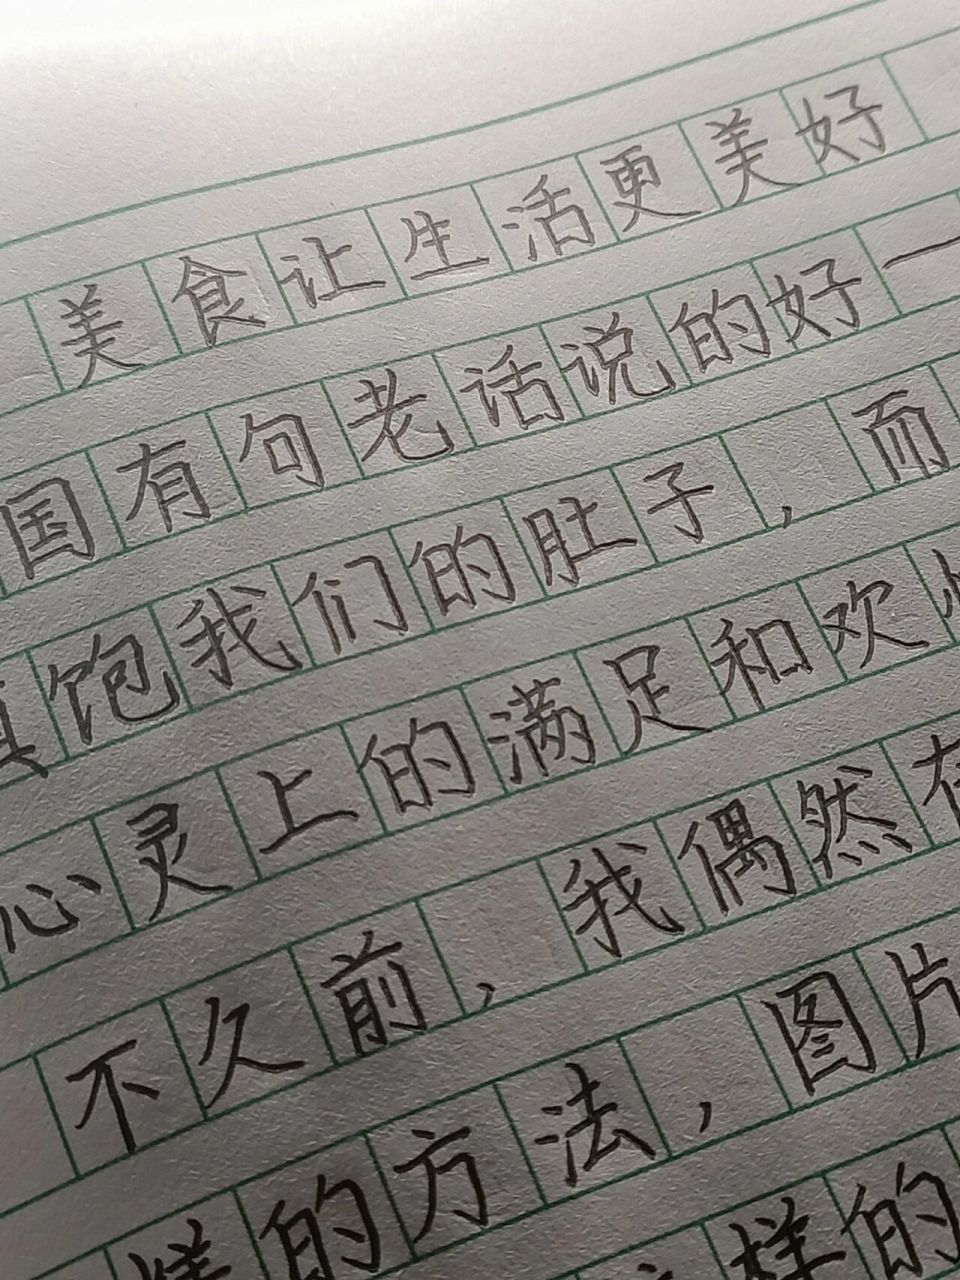 美食让生活更美好
国有句老话说的好一
填饱我们的肚子，而
心灵上的满足和欢
不久前，我偶然在
的方法，图片
样的